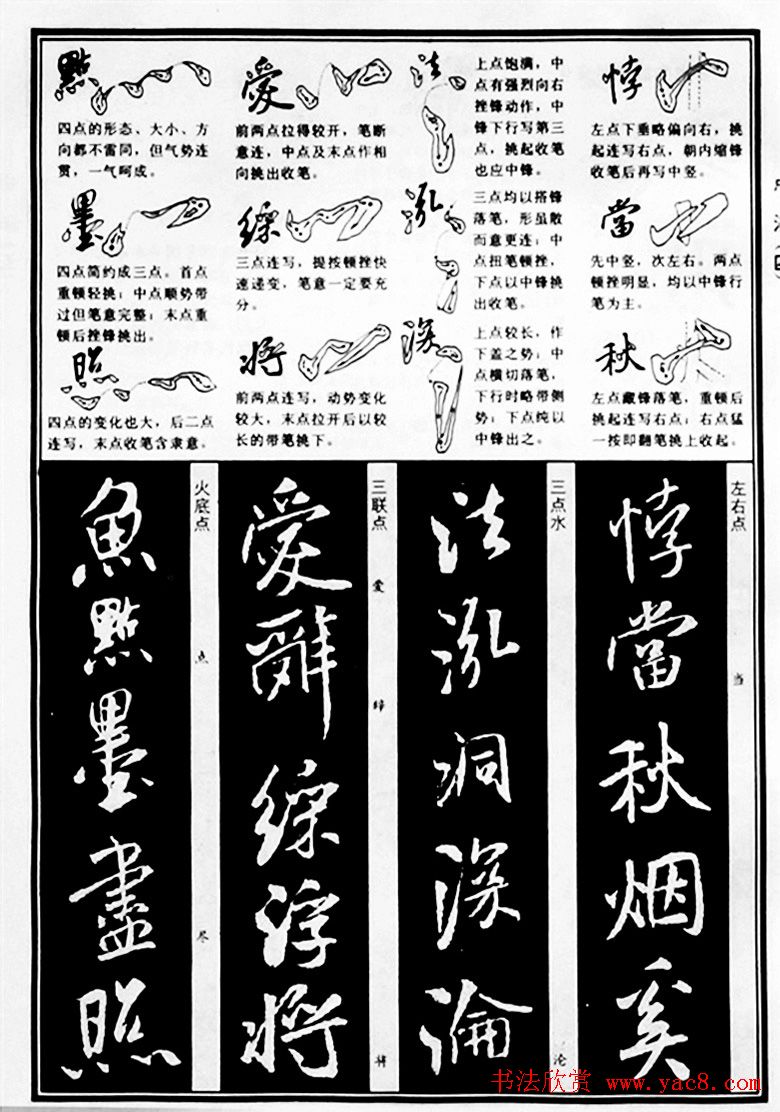 點
四点的形态、大小、方
向都不雷同，但气势连
贯，一气呵成。
墨
四点简约成三点。首点
重顿轻挑；中点顺势带
过但笔意完整；末点重
顿后挫锋挑出。
照
四点的变化也大，后二点
连写，末点收笔含隶意。
愛
前两点拉得较开，笔断
意连，中点及末点作相
向挑出收笔。
三点连写，提按顿挫快
速递变，笔意一定要充
分。
将
前两点连写，动势变化
较大，末点拉开后以较
长的带笔挑下。
法
上点饱满，中
点有强烈向右
挫锋动作，中
锋下行写第三
点，挑起收笔
也应中锋。
泓
三点均以搭锋
落笔，形虽散
而意更连；中
点扭笔顿挫，
下点以中锋挑
出收笔。
深
上点较长，作
下盖之势；中
点横切落笔，
下行时略带侧
势；下点纯以
中锋出之。
悖
左点下垂略偏向右，挑
起连写右点，朝内缩锋
收笔后再写中竖。
當
先中竖，次左右。两点
顿挫明显，均以中锋行
笔为主。
秋
左点藏锋落笔，重顿后
挑起连写右点；右点猛
一按即翻笔挑上收起。
火底点
点
尽
魚點墨盡照
三联点
爱
缔
将
愛
浮将
三点水
论
法泓洞深淪
左右点
当
悖當秋烟奚
书法欣赏 www.yac8.com